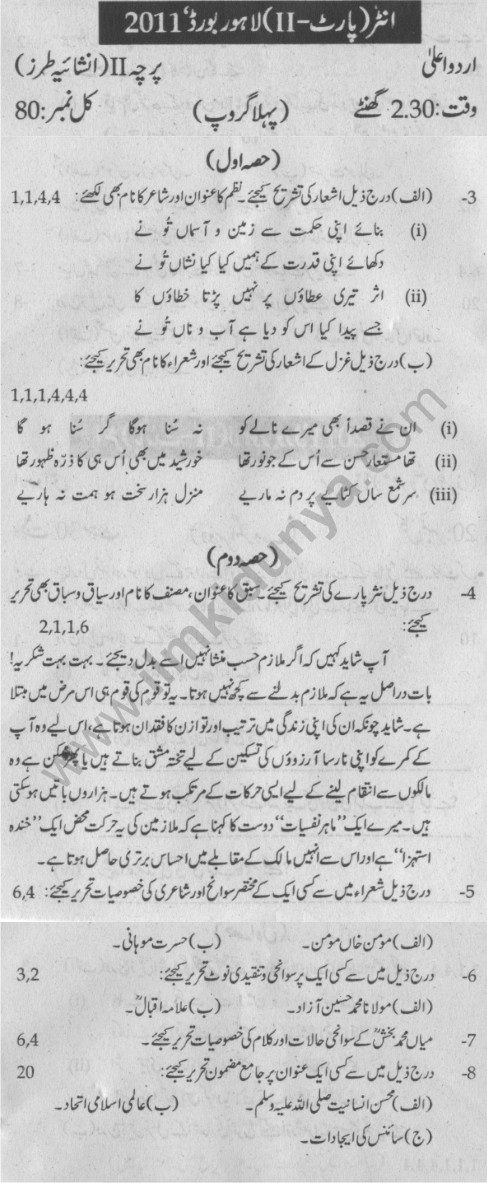 انٹر (پارٹ-II) لاہور بورڈ‘ 2011
اردو اعلیٰ پرچہ II (انشائیہ طرز)
وقت: 2.30 گھنٹے (پہلا گروپ) کل نمبر: 80
(حصہ اول)
3- (الف) درج ذیل اشعار کی تشریح کیجئے۔ نظم کا عنوان اور شاعر کا نام بھی لکھئے: 1,1,4,4
(i) بنائے اپنی حکمت سے زمین و آسماں تُو نے
دکھائے اپنی قدرت کے ہمیں کیا کیا نشاں تُو نے
(ii) اثر تیری عطاؤں پر نہیں پڑتا خطاؤں کا
جسے پیدا کیا اس کو دیا ہے آب و ناں تُو نے
(ب) درج ذیل غزل کے اشعار کی تشریح کیجئے اور شعراء کا نام بھی تحریر کیجئے:
1,1,1,4,4,4
(i) ان نے قصداً بھی میرے نالے کو نہ سُنا ہوگا گر سُنا ہو گا
(ii) تھا مستعار حسن سے اُس کے جو نور تھا خورشید میں بھی اُس ہی کا ذرّہ ظہور تھا
(iii) سر شمع ساں کٹائیے پر دم نہ ماریے منزل ہزار سخت ہو ہمت نہ ہاریے
(حصہ دوم)
4- درج ذیل نثر پارے کی تشریح کیجئے۔ سبق کا عنوان، مصنف کا نام اور سیاق و سباق بھی تحریر
کیجئے: 2,1,1,6
آپ شاید کہیں کہ اگر ملازم حسب منشا نہیں اسے بدل دیجئے۔ بہت بہت شکریہ!
بات دراصل یہ ہے کہ ملازم بدلنے سے کچھ نہیں ہوتا۔ یہ تو قوم کی قوم ہی اس مرض میں مبتلا
ہے۔ شاید چونکہ ان کی اپنی زندگی میں ترتیب اور توازن کا فقدان ہوتا ہے، اس لیے وہ آپ
کے کمرے کو اپنی نارسا آرزوؤں کی تسکین کے لیے تختہ مشق بناتے ہیں یا پھر ممکن ہے وہ
مالکوں سے انتقام لینے کے لیے ایسی حرکات کے مرتکب ہوتے ہیں۔ ہزاروں باتیں ہو سکتی
ہیں۔ میرے ایک ”ماہر نفسیات“ دوست کا کہنا ہے کہ ملازمین کی یہ حرکت محض ایک ”خندہ
استہزا“ ہے اور اس سے انہیں مالک کے مقابلے میں احساس برتری حاصل ہوتا ہے۔
5- درج ذیل شعراء میں سے کسی ایک کے مختصر سوانح اور شاعری کی خصوصیات تحریر کیجئے: 6,4
(الف) مومن خاں مومن۔ (ب) حسرت موہانی۔
6- درج ذیل میں سے کسی ایک پر سوانحی و تنقیدی نوٹ تحریر کیجئے: 3,2
(الف) مولانا محمد حسین آزاد۔ (ب) علامہ اقبالؒ۔
7- میاں محمد بخشؒ کے سوانحی حالات اور کلام کی خصوصیات تحریر کیجئے۔ 6,4
8- درج ذیل میں سے کسی ایک عنوان پر جامع مضمون تحریر کیجئے: 20
(الف) محسن انسانیت صلی اللہ علیہ وسلم۔ (ب) عالمی اسلامی اتحاد۔
(ج) سائنس کی ایجادات۔
www.ilmkidunya.com